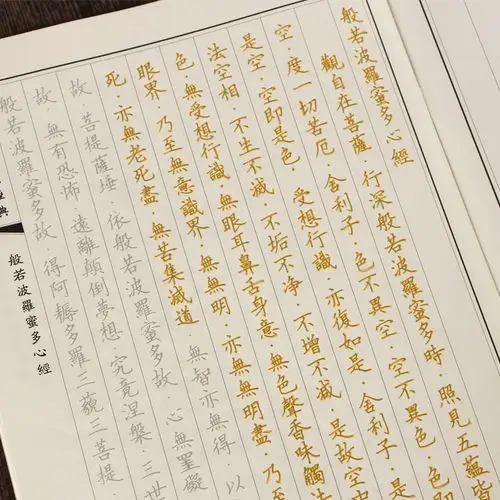 般若波羅蜜多心經
觀自在菩薩·行深般若波羅蜜多時·照見五蘊皆
空·度一切苦厄·舍利子·色不異空·空不異色·色即
是空·空即是色·受想行識·亦復如是·舍利子·是
法空相 不生不滅 不垢不淨·不增不減·是故空中
色·無受想行識·無眼耳鼻舌身意·無色聲香味觸
眼界·乃至無意識界·無無明·亦無無明盡·乃至
死·亦無老死盡·無苦集滅道 無智亦無得·以
故·菩提薩埵·依般若波羅蜜多故·心無罣礙
故 無有恐怖 遠離顛倒夢想·究竟涅槃·三世
般若波羅蜜多故·得阿耨多羅三藐三菩提
典
般若波羅蜜多心經